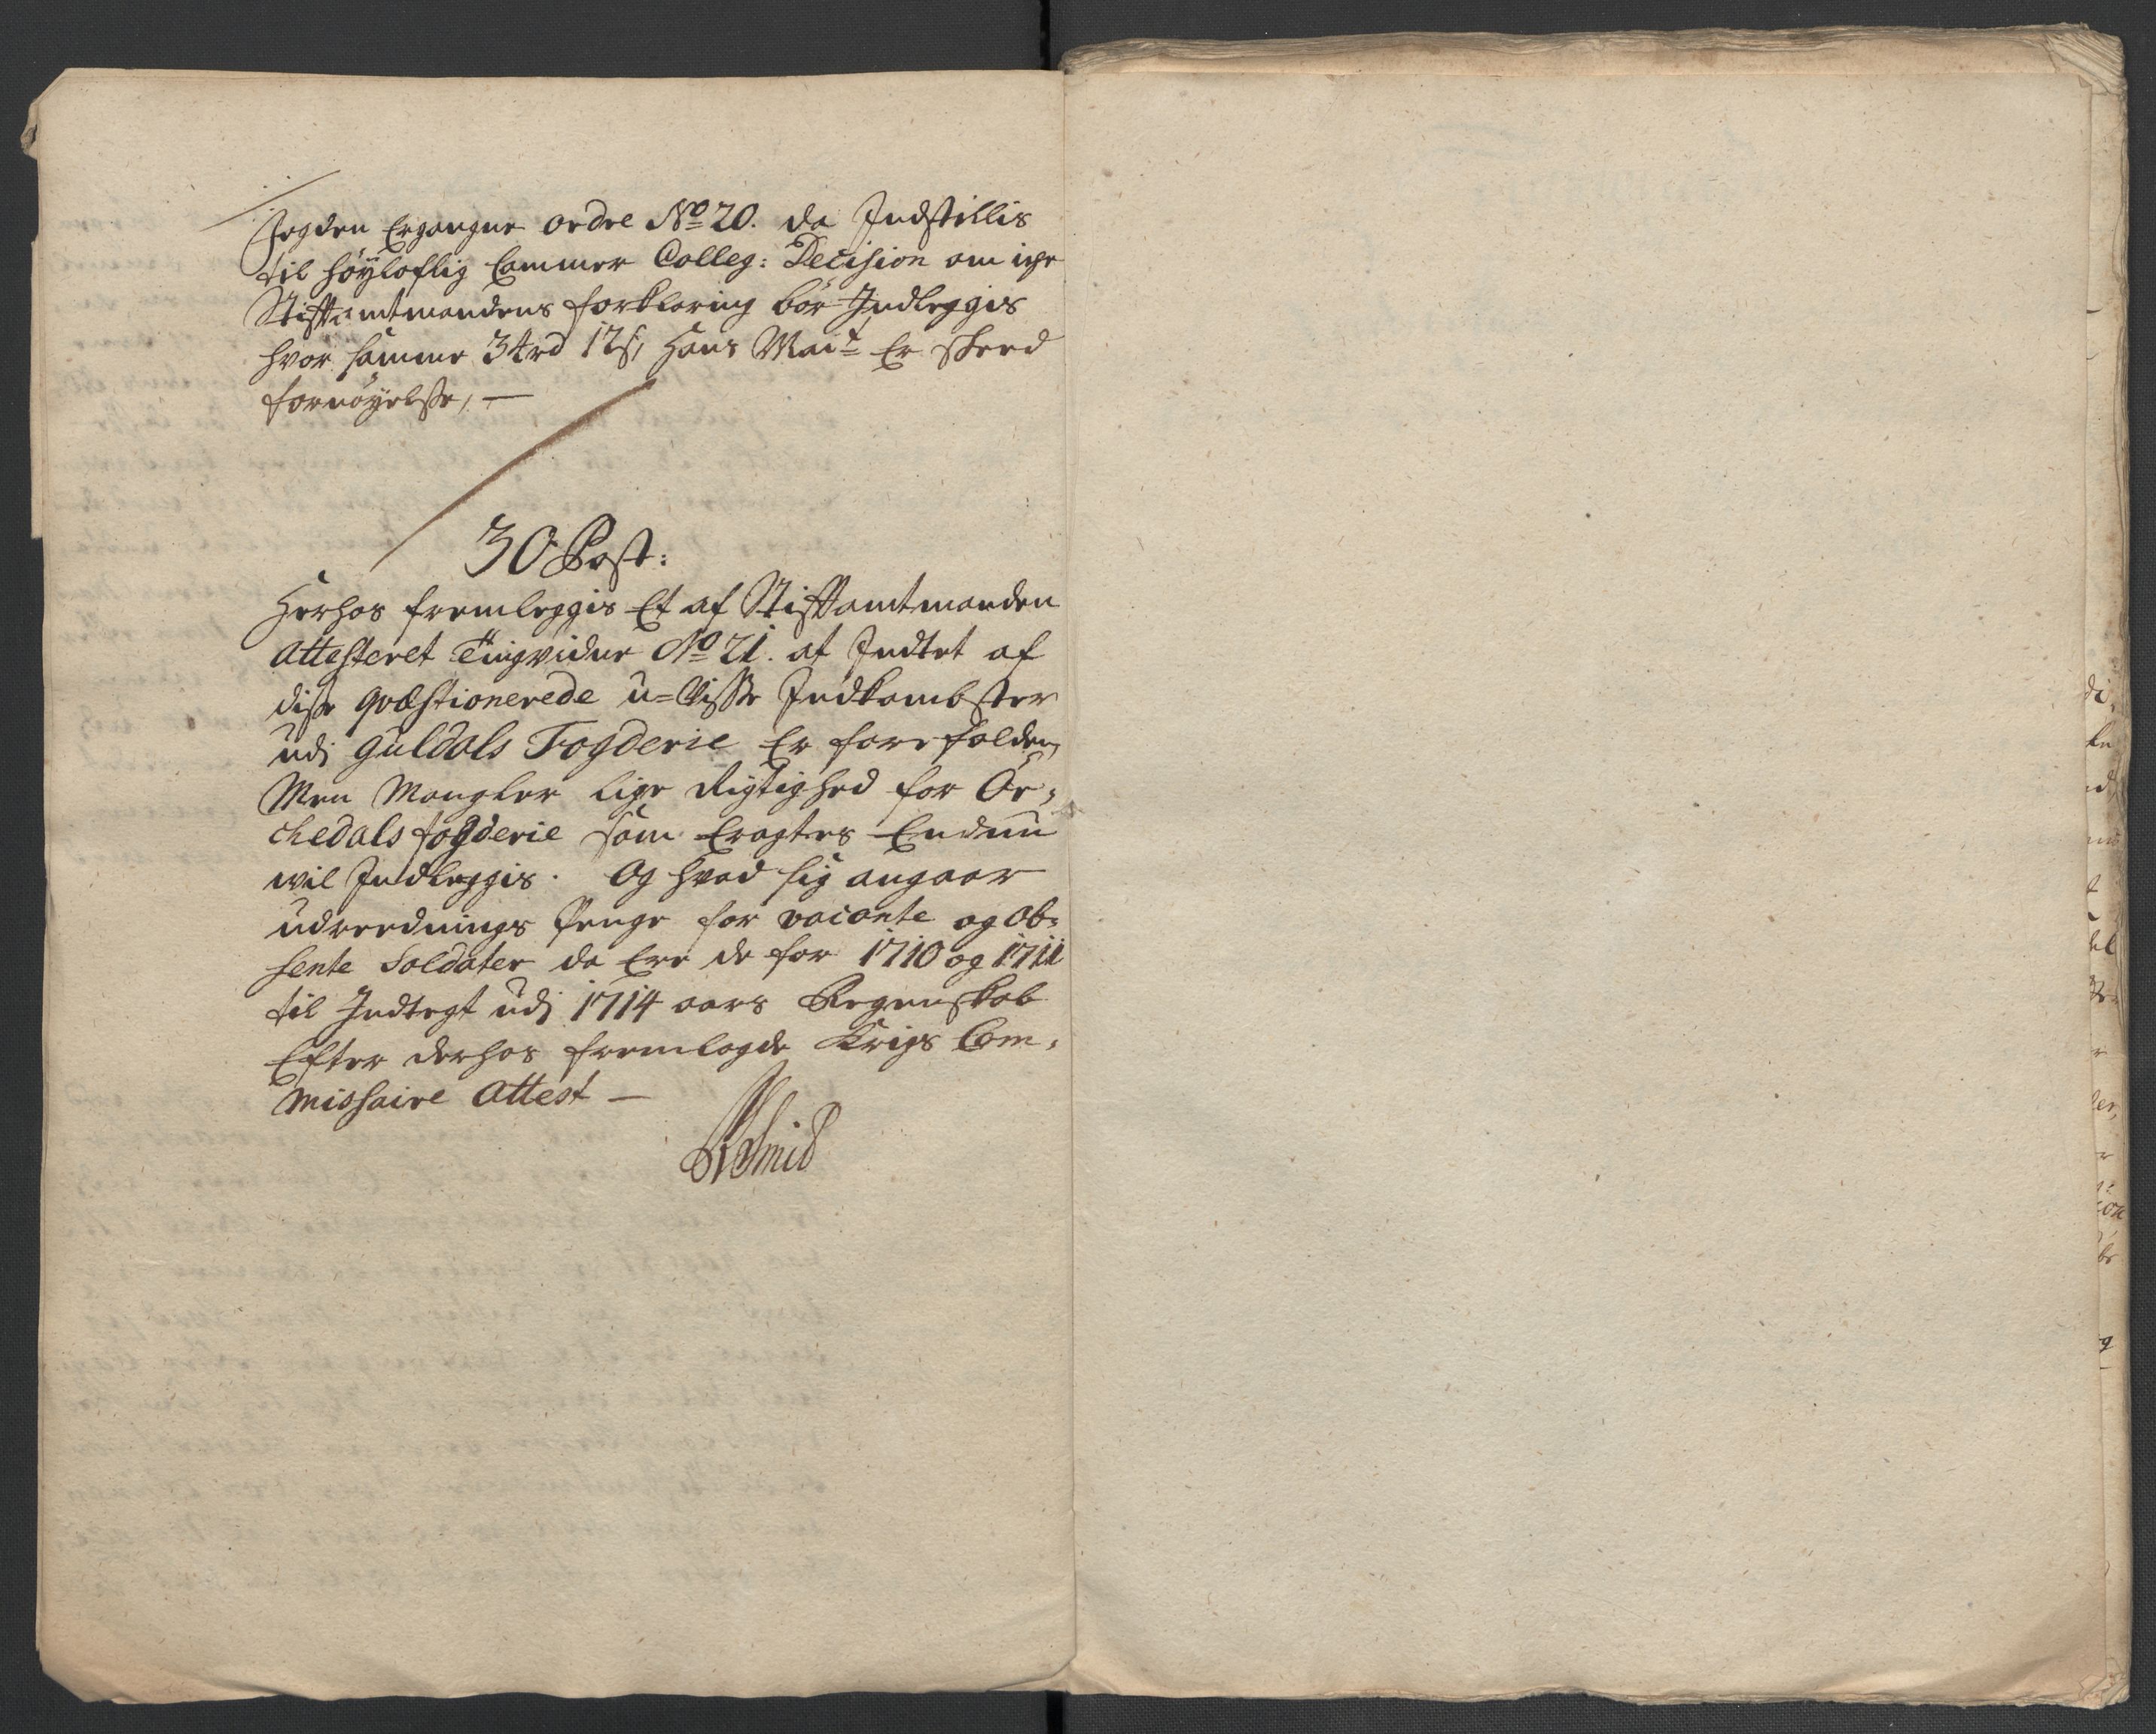 Fogden Ergangne ordre No 20. da Indstillis
til høyloflig Cammer Colleg: Decision om icke
Stifftamtmandens forklaring bör Indleggis
hvor samme 34rd 12s, Hans Mait Er skeed
fornöyelsse, —
30 Post:
Herhos fremleggis Et af Stifftamtmanden
Attesteret Tingvidne No 21. at Indtet af
disse qvæstionerede u-Visse Indkombster
udj Guldals Fogderie Er forefalden,
Men Mangler lige Rigtighed for Or,
chedals fogderie som Eragtes Endnu
wil Indleggis. Og hvad sig angaar
udreednings Penge for vacante og Ab-
sente Soldater da Ere de for 1710 og 1711
til Indtegt udj 1714 aars Regenskab
Efter derhos fremlagde Krigs Com,
missaire Attest —
Smid